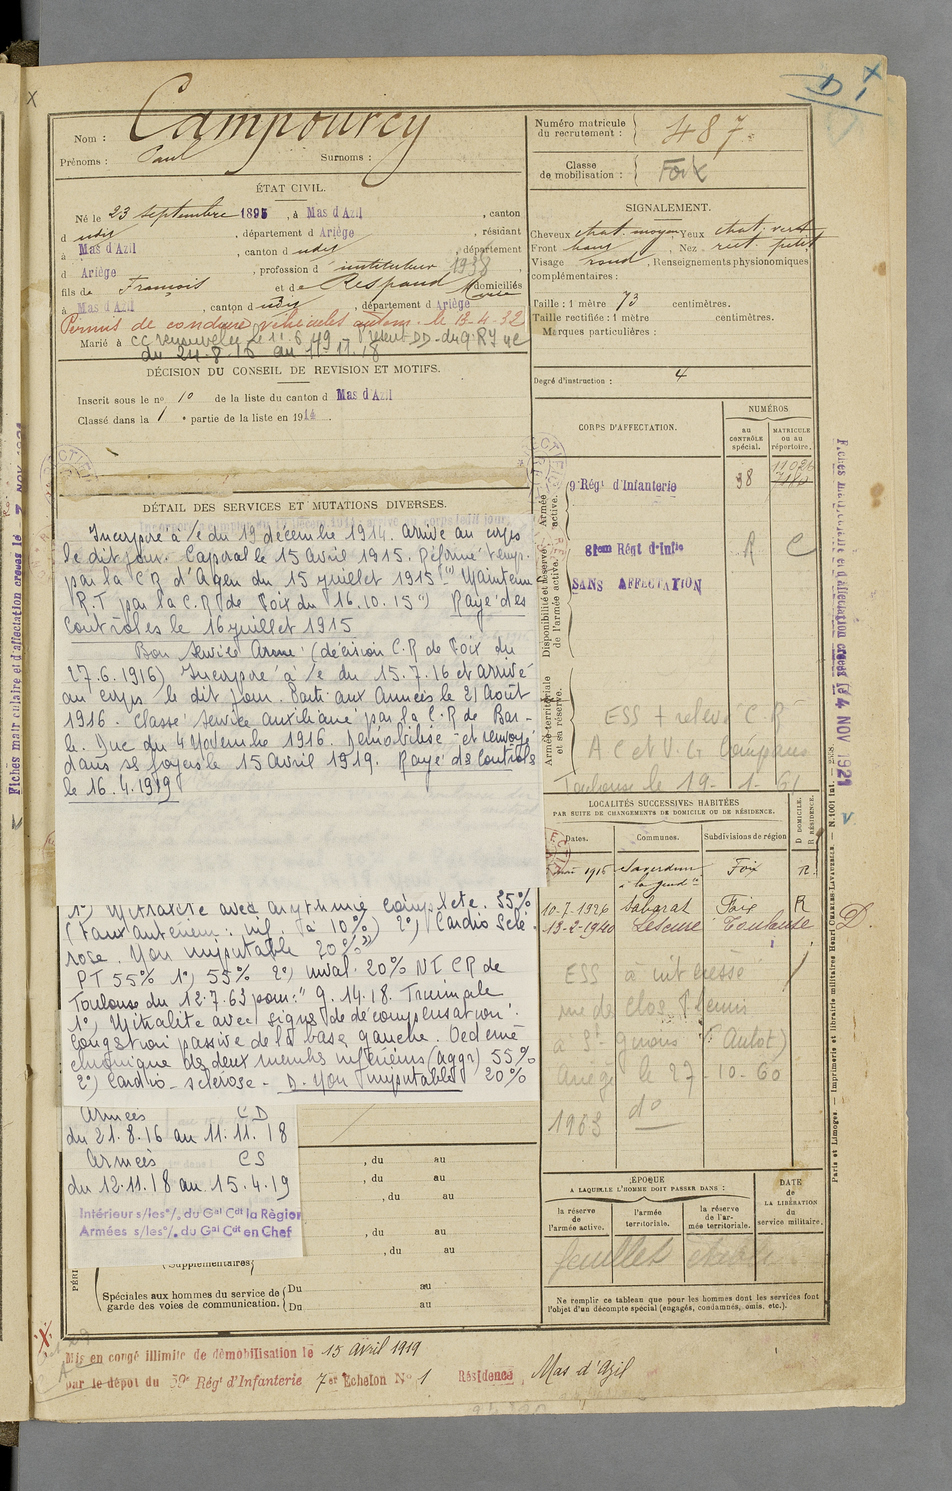 Nom : Campourcy
Prénoms : Paul Surnoms :
Numéro matricule du recrutement : 487.
Classe de mobilisation : Foix
ÉTAT CIVIL.
Né le 23 septembre 1895, à Mas d'Azil, canton
d udit, département d Ariège, résidant
à Mas d'Azil, canton d udit, département
d Ariège, profession d instituteur 1938,
fils de François et de Respaud Marie domiciliés
à Mas d'Azil, canton d udit, département d Ariège
Permis de conduire véhicules autom. le 13-4-32
Marié à CC renouvelée le 11.6.49 Présent DD. du 9e RI UC
du 24.8.16 au 11.11.18
SIGNALEMENT.
Cheveux chat. moyen, Yeux chat. vert
Front haut, Nez rect. petit
Visage rond, Renseignements physionomiques
complémentaires :
Taille : 1 mètre 73 centimètres.
Taille rectifiée : 1 mètre centimètres.
Marques particulières :
Degré d'instruction : 4
DÉCISION DU CONSEIL DE REVISION ET MOTIFS.
Inscrit sous le no 10 de la liste du canton d Mas d'Azil
Classé dans la 1e partie de la liste en 1914.
DÉTAIL DES SERVICES ET MUTATIONS DIVERSES.
Incorporé à /c du 19 décembre 1914. Arrivé au corps
le dit jour. Caporal le 15 avril 1915. Réformé temp.
par la C R d'Agen du 15 juillet 1915 (1) Maintenu
R.T par la C.R de Foix du 16.10.15") Rayé des
Contrôles le 16 juillet 1915
Bon service Armé (décision C.R de Foix du
27.6.1916) Incorporé à /c du 15.7.16 et arrivé
au corps le dit jour. Parti aux Armées le 21 Août
1916. Classé service auxiliaire par la C.R de Bar-
le-Duc du 4 Novembre 1916. Démobilisé et renvoyé
dans ses foyers le 15 Avril 1919. Rayé des Contrôles
le 16.4.1919
1°) Mitralite avec arythmie complète. 35%
(Taux antérieur : inf. à 10%) 2°) Cardio Sclé-
rose. Non imputable 20%"
PT 55% 1°) 55% 2°) inval. 20% NI CR de
Toulouse du 12.7.63 pour : "G. 14.18. Triumple
1°) Mitralite avec signes de décompensation :
Congestion passive de la base gauche. Oedème
chronique des deux membres inférieurs (aggr) 55%
2°) Cardio-sclérose - D. Non imputable 20%
Armées CD
du 21.8.16 au 11.11.18
Armées CS
du 12.11.18 au 15.4.19
Intérieur s/les o/. du Gal Cdt la Région
Armées s/les o/. du Gal Cdt en Chef
, du au
, du au
, du au
, du au
, du au
Supplémentaires
Spéciales aux hommes du service de garde des voies de communication. Du au
Du au
CORPS D'AFFECTATION.
NUMÉROS
au contrôle spécial.
MATRICULE ou au répertoire.
Armée active.
9e Régt d'Infanterie 38 11026 7180
Disponibilité et réserve de l'armée active.
81eme Régt d'Infie R C
SANS AFFECTATION
Armée territoriale et sa réserve.
ESS + relevé C.R
A C et V. G Compans
Toulouse le 19-1-61
LOCALITÉS SUCCESSIVES HABITÉES
PAR SUITE DE CHANGEMENTS DE DOMICILE OU DE RÉSIDENCE.
Dates. Communes. Subdivisions de région D DOMICILE. R RÉSIDENCE.
mai 1916 Saverdun Foix R.
à la gend
10-7-1926 Sabarat Foix R
13-2-1940 Lescure Toulouse D.
ESS à intéressé
rue des clos
à St Girons
Ariège le 27-10-60
1963 do
ÉPOQUE
A LAQUELLE L'HOMME DOIT PASSER DANS :
la réserve de l'armée active. l'armée territoriale. la réserve de l'armée territoriale.
DATE de LA LIBÉRATION du service militaire.
feuillet
Ne remplir ce tableau que pour les hommes dont les services font
l'objet d'un décompte spécial (engagés, condamnés, omis, etc.).
Mis en congé illimité de démobilisation le 15 avril 1919
par le dépôt du 59e Régt d'Infanterie 7e Echelon No 1 Résidence, Mas d'Azil
Fiches matriculaire et d'affectation créées le 4 NOV 1921
Paris et Limoges. — Imprimerie et librairie militaires Henri CHARLES-LAVAUZELLE. — N. 1001 Int.